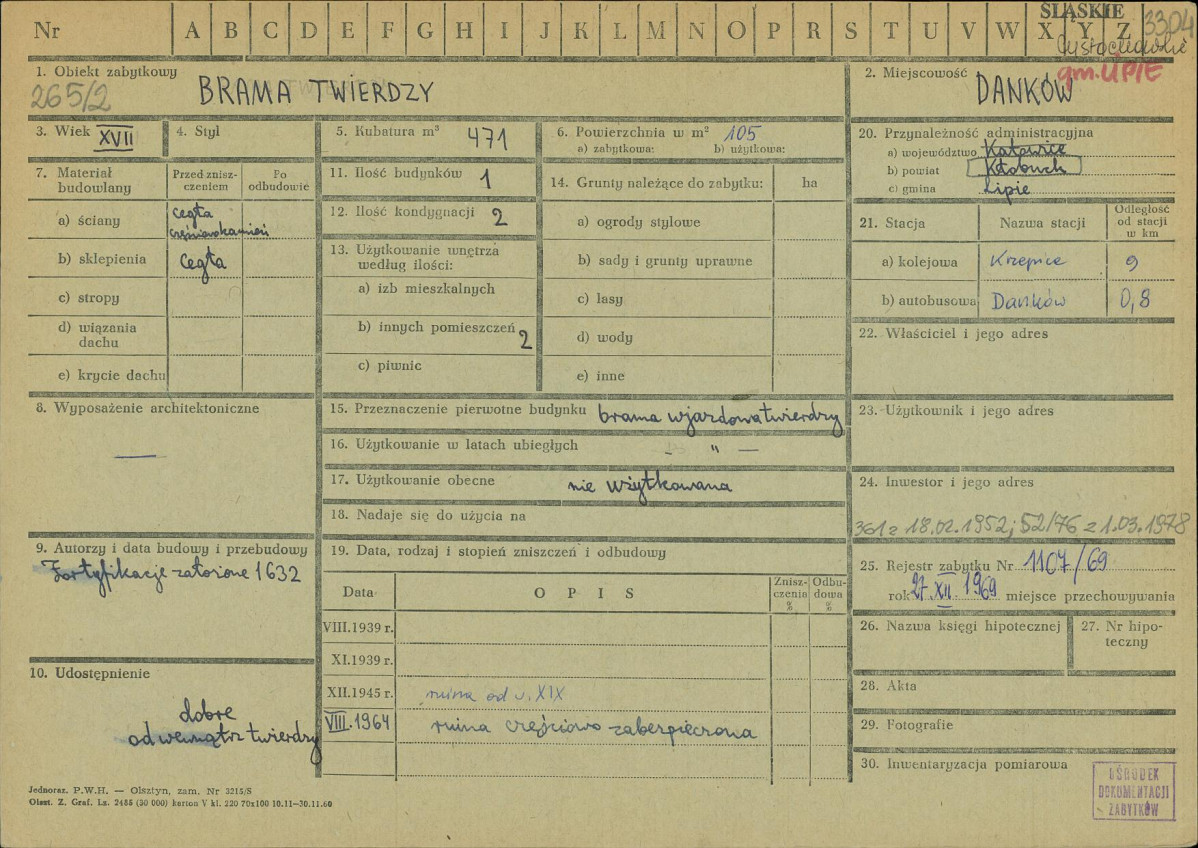 Nr A B C D E F G H I J K L M N O P R S T U V W X Y Z
ŚLĄSKIE
3304
gm. LIPIE
1. Obiekt zabytkowy
265/2
BRAMA TWIERDZY
2. Miejscowość
DANKÓW
3. Wiek XVII
4. Styl
5. Kubatura m³ 471
6. Powierzchnia w m² 105
a) zabytkowa: b) użytkowa:
7. Materiał budowlany
Przed zniszczeniem
Po odbudowie
a) ściany cegła częściowo kamień
b) sklepienia cegła
c) stropy
d) wiązania dachu
e) krycie dachu
8. Wyposażenie architektoniczne
—
9. Autorzy i data budowy i przebudowy
Fortyfikacje założone 1632
10. Udostępnienie
dobre
od wewnątrz twierdzy
11. Ilość budynków 1
12. Ilość kondygnacji 2
13. Użytkowanie wnętrza
według ilości:
a) izb mieszkalnych
b) innych pomieszczeń 2
c) piwnic
14. Grunty należące do zabytku: ha
a) ogrody stylowe
b) sady i grunty uprawne
c) lasy
d) wody
e) inne
15. Przeznaczenie pierwotne budynku brama wjazdowa twierdzy
16. Użytkowanie w latach ubiegłych — " —
17. Użytkowanie obecne nie użytkowana
18. Nadaje się do użycia na
19. Data, rodzaj i stopień zniszczeń i odbudowy
Data O P I S Zniszczenia % Odbudowa %
VIII.1939 r.
XI.1939 r.
XII.1945 r. ruina od w. XIX
VIII.1964 ruina częściowo zabezpieczona
20. Przynależność administracyjna
a) województwo Katowice
b) powiat Kłobuck
c) gmina Lipie
21. Stacja Nazwa stacji Odległość od stacji w km
a) kolejowa Krzepice 9
b) autobusowa Danków 0,8
22. Właściciel i jego adres
23. Użytkownik i jego adres
24. Inwestor i jego adres
361 z 18.02.1952; 52/76 z 1.03.1978
25. Rejestr zabytku Nr 1107/69
rok 27.XII.1969 miejsce przechowywania
26. Nazwa księgi hipotecznej
27. Nr hipoteczny
28. Akta
29. Fotografie
30. Inwentaryzacja pomiarowa
OŚRODEK
DOKUMENTACJI
ZABYTKÓW
Jednoraz. P.W.H. — Olsztyn, zam. Nr 3215/S
Olszt. Z. Graf. Lz. 2485 (30 000) karton V kl. 220 70x100 10.11—30.11.60